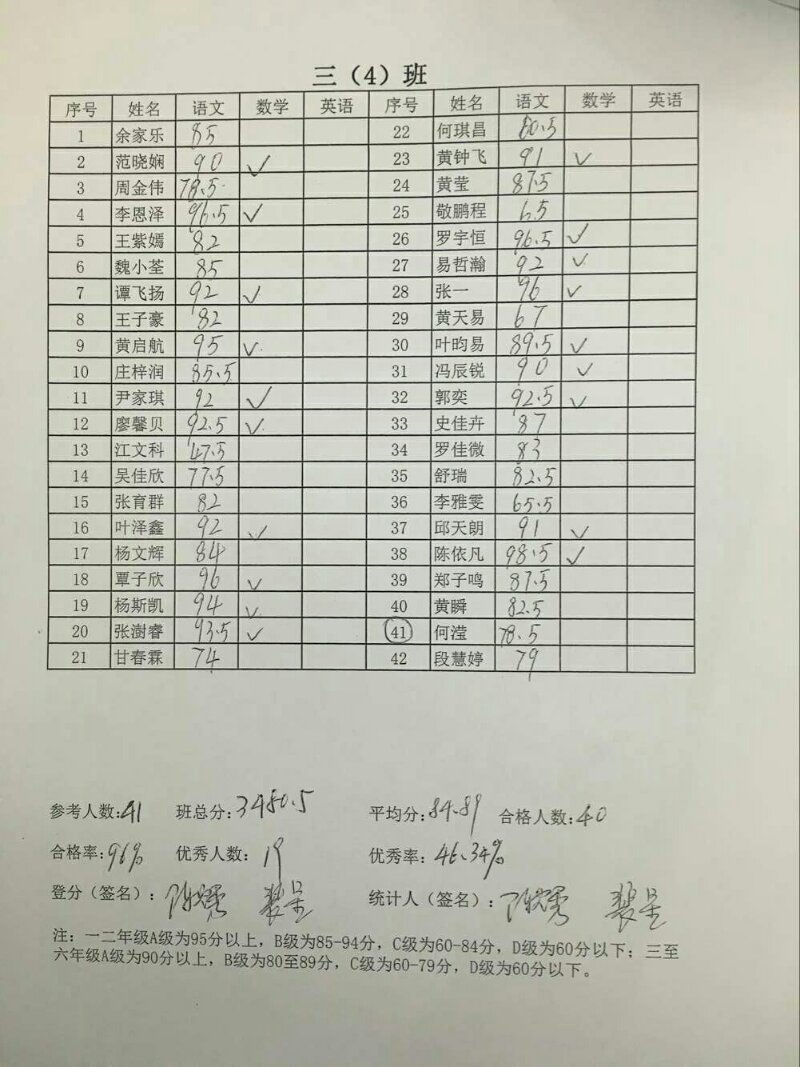 三（4）班
序号 姓名 语文 数学 英语 序号 姓名 语文 数学 英语
1 余家乐 85 22 何琪昌 80.5
2 范晓娴 90 ✓ 23 黄钟飞 91 ✓
3 周金伟 78.5 24 黄莹 87.5
4 李恩泽 96.5 ✓ 25 敬鹏程 65
5 王紫嫣 82 26 罗宇恒 96.5 ✓
6 魏小荃 85 27 易哲瀚 92 ✓
7 谭飞扬 92 ✓ 28 张一 96 ✓
8 王子豪 82 29 黄天易 67
9 黄启航 95 ✓ 30 叶昀易 89.5 ✓
10 庄梓润 85.5 31 冯辰锐 90 ✓
11 尹家琪 92 ✓ 32 郭奕 92.5 ✓
12 廖馨贝 92.5 ✓ 33 史佳卉 87
13 江文科 47.5 34 罗佳微 83
14 吴佳欣 77.5 35 舒瑞 82.5
15 张育群 82 36 李雅雯 65.5
16 叶泽鑫 92 ✓ 37 邱天朗 91 ✓
17 杨文辉 84 38 陈依凡 98.5 ✓
18 覃子欣 96 ✓ 39 郑子鸣 87.5
19 杨斯凯 94 ✓ 40 黄瞬 82.5
20 张澍睿 93.5 ✓ 41 何滢 78.5
21 甘春霖 74 42 段慧婷 79
参考人数:41 班总分:3480.5 平均分:84.89 合格人数:40
合格率:96% 优秀人数:19 优秀率:46.34%
登分（签名）: 统计人（签名）:
注：一二年级A级为95分以上，B级为85-94分，C级为60-84分，D级为60分以下；三至
六年级A级为90分以上，B级为80至89分，C级为60-79分，D级为60分以下。